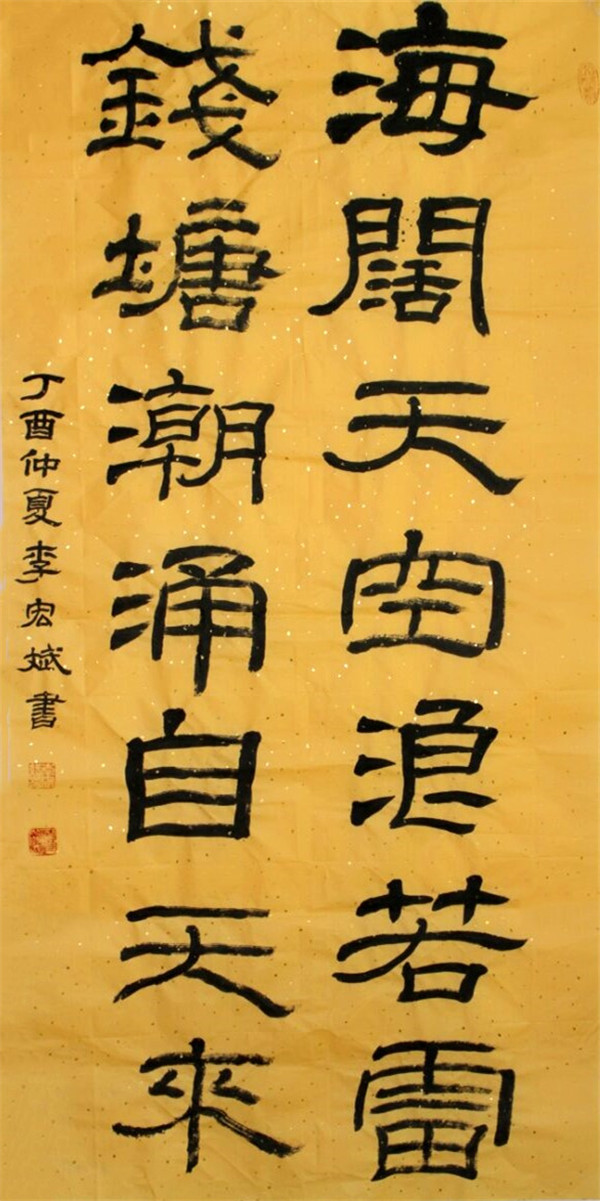 海闊天空浪若雷
錢塘潮涌自天來
丁酉仲夏李宏斌書